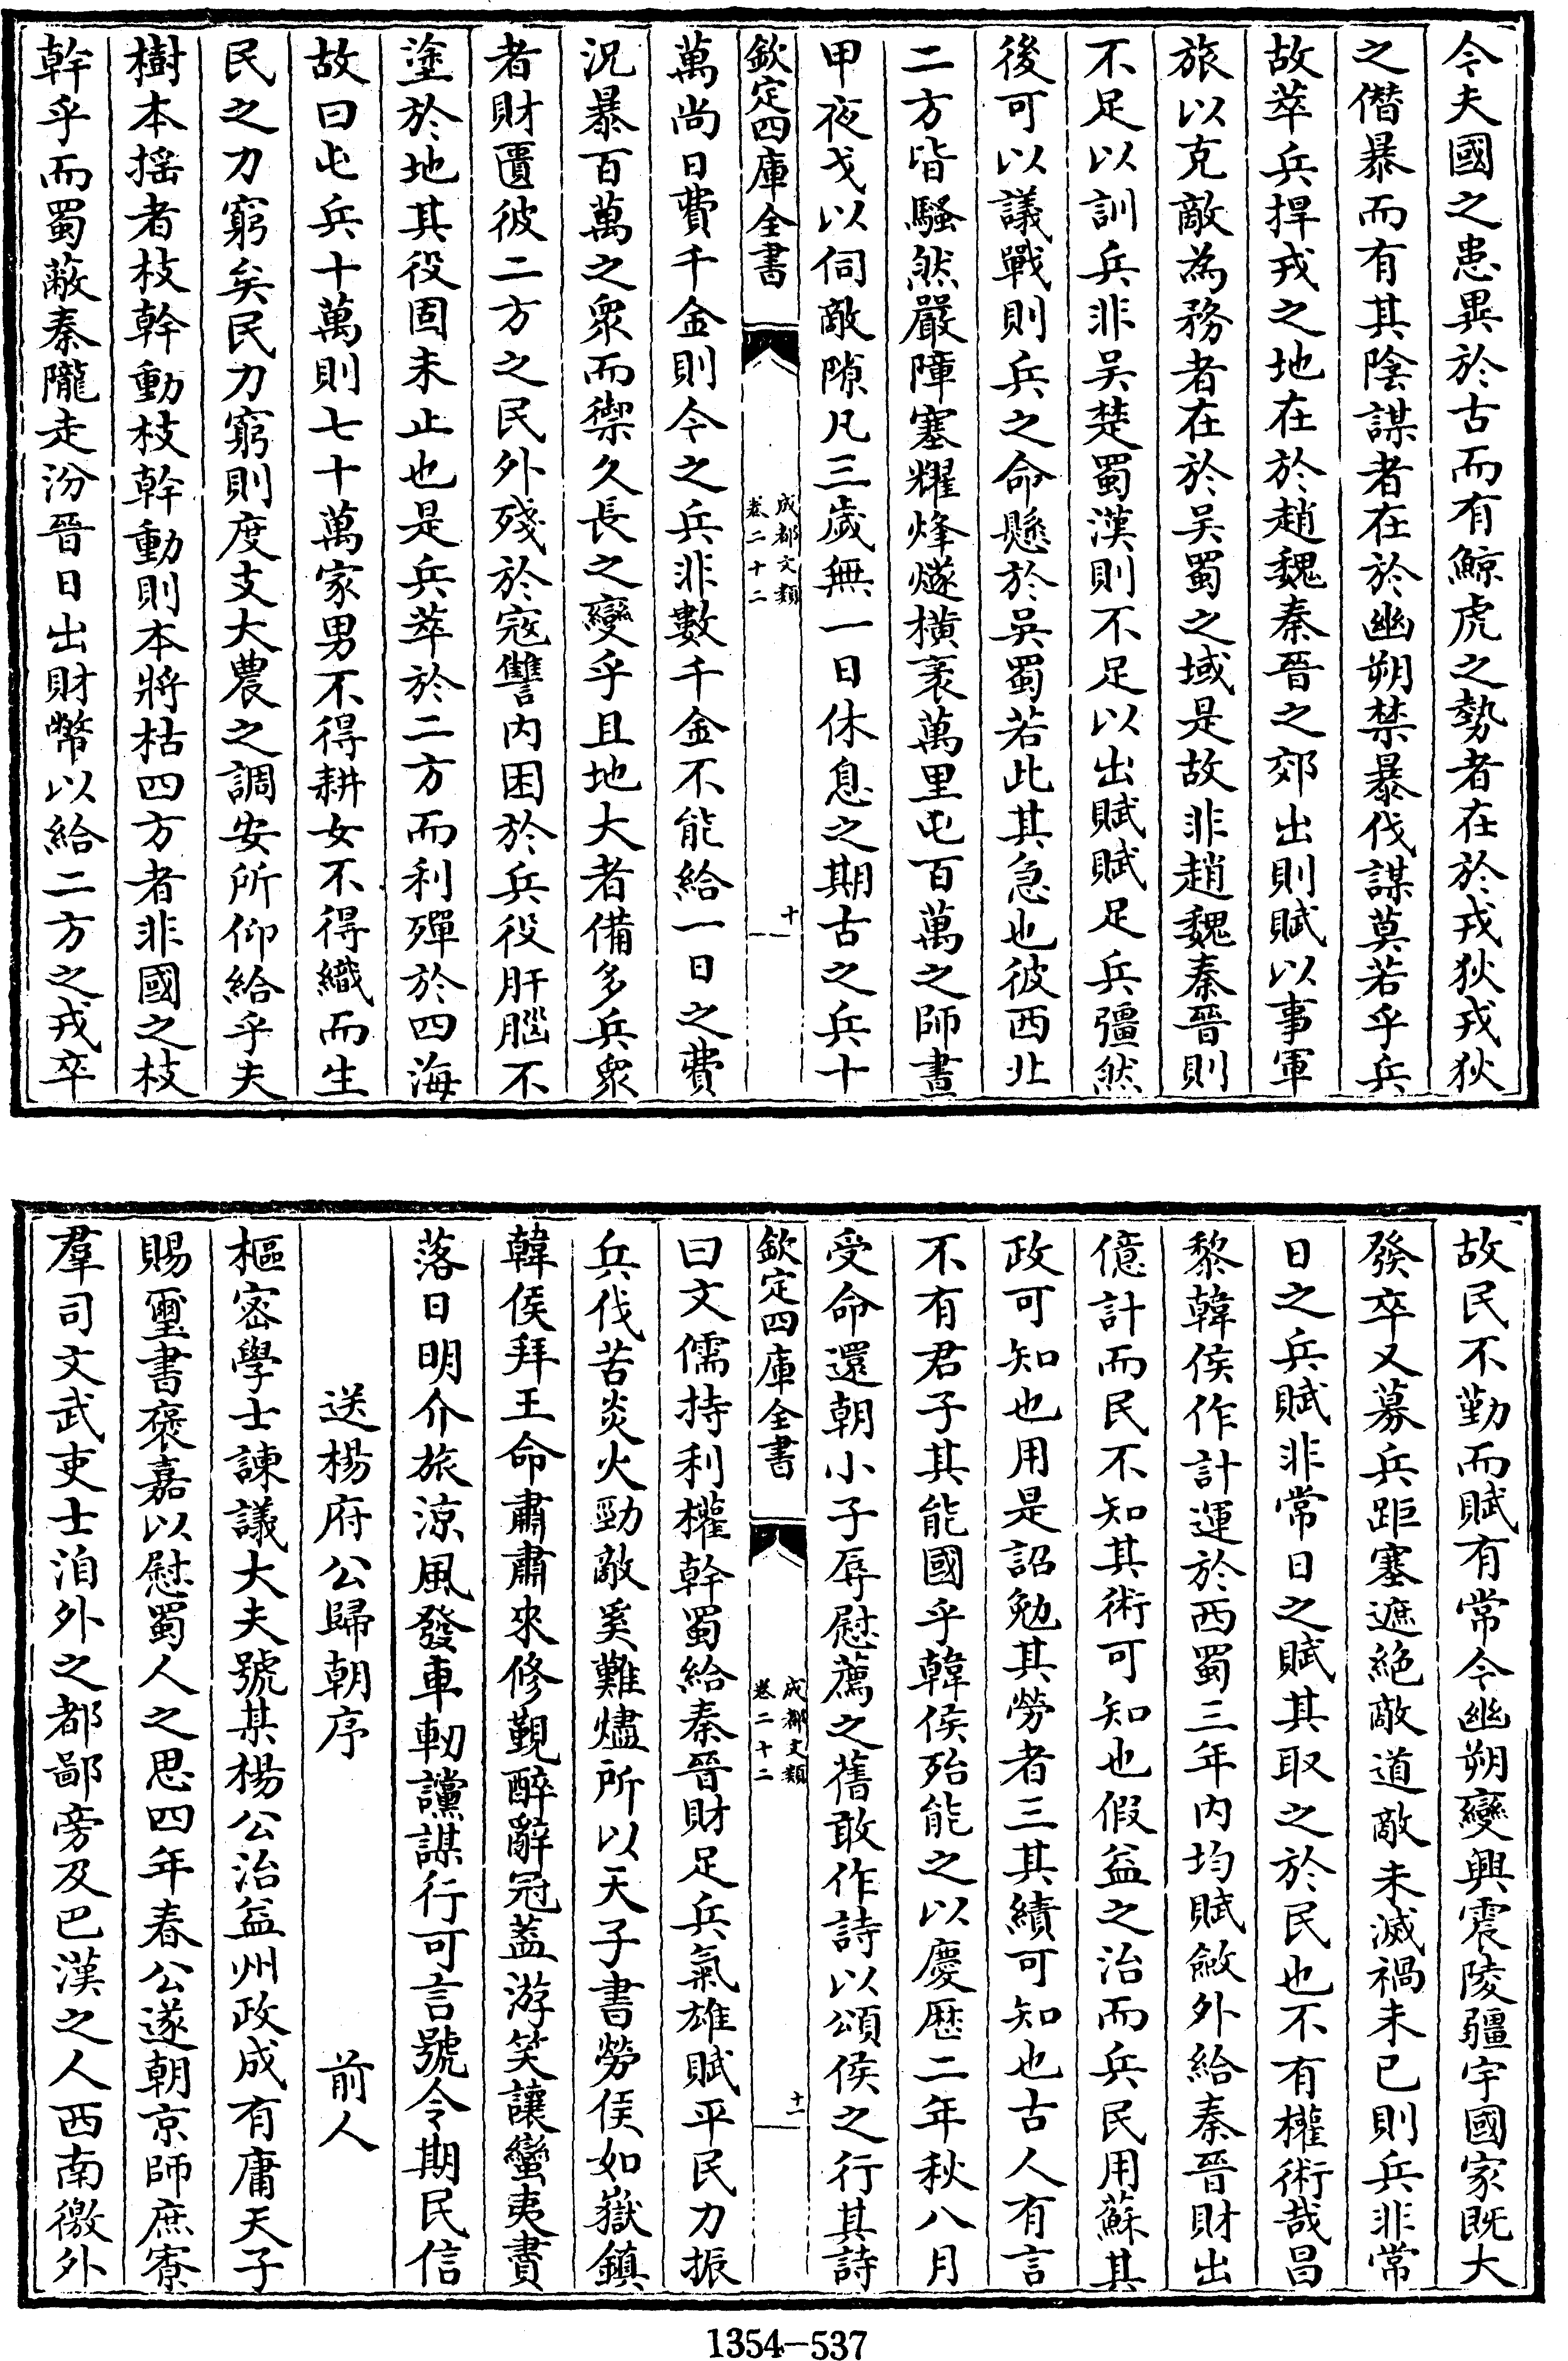 今夫國之患異於古而有鯨虎之勢者在於戎狄戎狄
之僭暴而有其陰謀者在於幽朔禁暴伐謀莫若乎兵
故萃兵捍戎之地在於趙魏秦晉之郊出則賦以事軍
旅以克敵為務者在於吳蜀之域是故非趙魏秦晉則
不足以訓兵非吳楚蜀漢則不足以出賦賦足兵彊然
後可以議戰則兵之命懸於吳蜀若此其急也彼西北
二方皆騷然嚴障塞耀烽燧橫袤萬里屯百萬之師晝
甲夜戈以伺敵隙凡三歲無一日休息之期古之兵十
欽定四庫全書
成都文類
卷二十二
十
萬尚日費千金則今之兵非數千金不能給一日之費
況暴百萬之衆而禦久長之變乎且地大者備多兵衆
者財匱彼二方之民外殘於寇讐內困於兵役肝腦不
塗於地其役固未止也是兵萃於二方而利殫於四海
故曰屯兵十萬則七十萬家男不得耕女不得織而生
民之力窮矣民力窮則度支大農之調安所仰給乎夫
樹本搖者枝幹動枝幹動則本將枯四方者非國之枝
幹乎而蜀蔽秦隴走汾晉日出財幣以給二方之戎卒
故民不勤而賦有常今幽朔變興震陵疆宇國家既大
發卒又募兵距塞遮絕敵道敵未滅禍未已則兵非常
日之兵賦非常日之賦其取之於民也不有權術哉昌
黎韓侯作計運於西蜀三年內均賦斂外給秦晉財出
億計而民不知其術可知也假益之治而兵民用蘇其
政可知也用是詔勉其勞者三其績可知也古人有言
不有君子其能國乎韓侯殆能之以慶歴二年秋八月
受命還朝小子辱慰薦之舊敢作詩以頌侯之行其詩
欽定四庫全書
成都文類
卷二十二
十一
曰文儒持利權幹蜀給秦晉財足兵氣雄賦平民力振
兵伐苦炎火勁敵奚難燼所以天子書勞侯如嶽鎮
韓侯拜王命肅肅來修覲醉辭冠蓋游笑讓蠻夷賮
落日明介旅涼風發車軔讜謀行可言號令期民信
送楊府公歸朝序 前人
樞密學士諫議大夫號某楊公治益州政成有庸天子
賜璽書褒嘉以慰蜀人之思四年春公遂朝京師庶寮
羣司文武吏士洎外之都鄙旁及巴漢之人西南徼外
1354—537